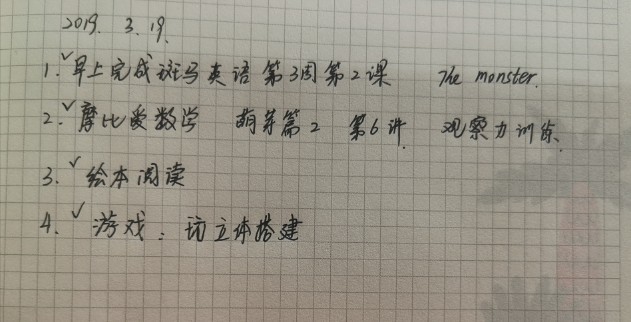 2019. 3. 19.
1.✓早上完成斑马英语 第3周第2课 The monster.
2.✓摩比爱数学 萌芽篇2 第6讲. 观察力训练.
3.✓绘本阅读
4.✓游戏：立体搭建